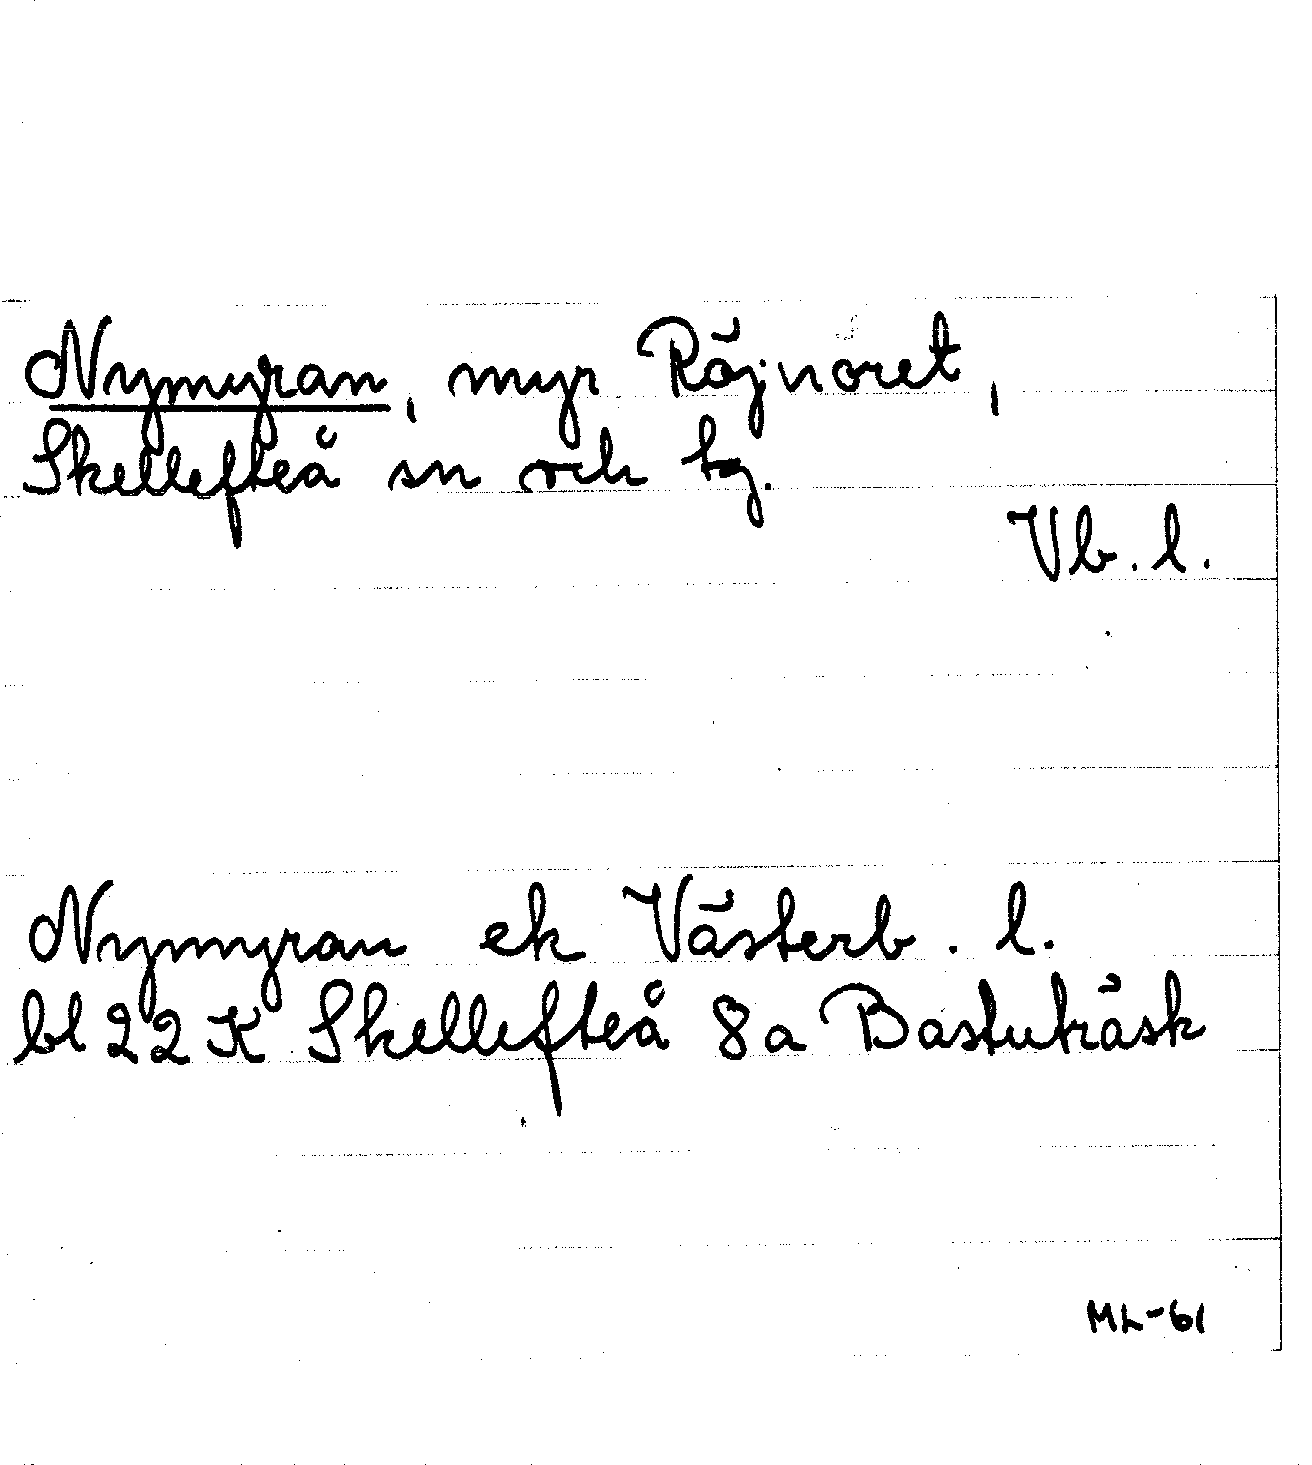 Nymyran, myr Räjnoret,
Skellefteå sn och tg.
Vb. l.
Nymyran ek Västerb. l.
bl 22 K Skellefteå 8a Bastuträsk
ML-61